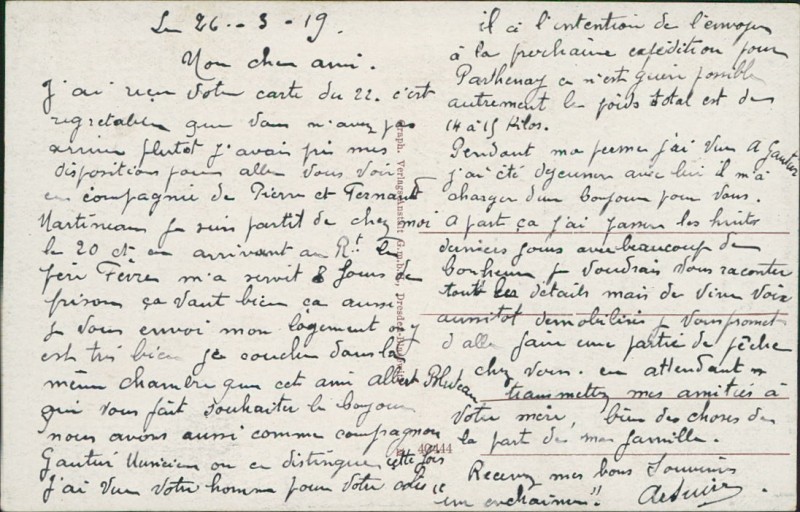 Le 26 - 3 - 19.
Mon cher ami.
J'ai reçu votre carte du 22. c'est
regretable que vous n'avez pas
arriver plutôt j'avais pri mes
dispositions pour aller vous voir
en compagnie de Pierre et Fernand
Martineau je suis partit de chez moi
le 20 ct en arrivant au Rt. le
père Fèvre m'a servit 8 jours de
prison ça vaut bien ça aussi
je vous envoi mon logement
est très bien je couche dans la
même chambre que cet ami Albert
qui vous fait souhaiter le bonjour
nous avons aussi comme compagnon
Gautier Musicien on ce distingue cette fois
J'ai vu votre homme pour votre colis
il à l'intention de l'envoyer
à la prochaine expédition pour
Parthenay ce n'est guère possible
autrement le poids total est de
14 à 15 kilos.
Pendant ma perme j'ai vu A Gautier
j'ai été dejeuner avec lui il m'a
charger d'un bonjour pour vous.
A part ça j'ai passer les huits
derniers jours avec beaucoup de
bonheur je voudrais vous raconter
tout les détails mais de vive voix
aussitôt demobilisés je vous promet
d'aller faire une partie de pêche
chez vous. en attendant
transmettez mes amitiés à
votre mère, bien des choses de
la part de ma famille.
Recevez mes bons souvenirs
Graph. Verlags-Anstalt G.m.b.H., Dresden
40444